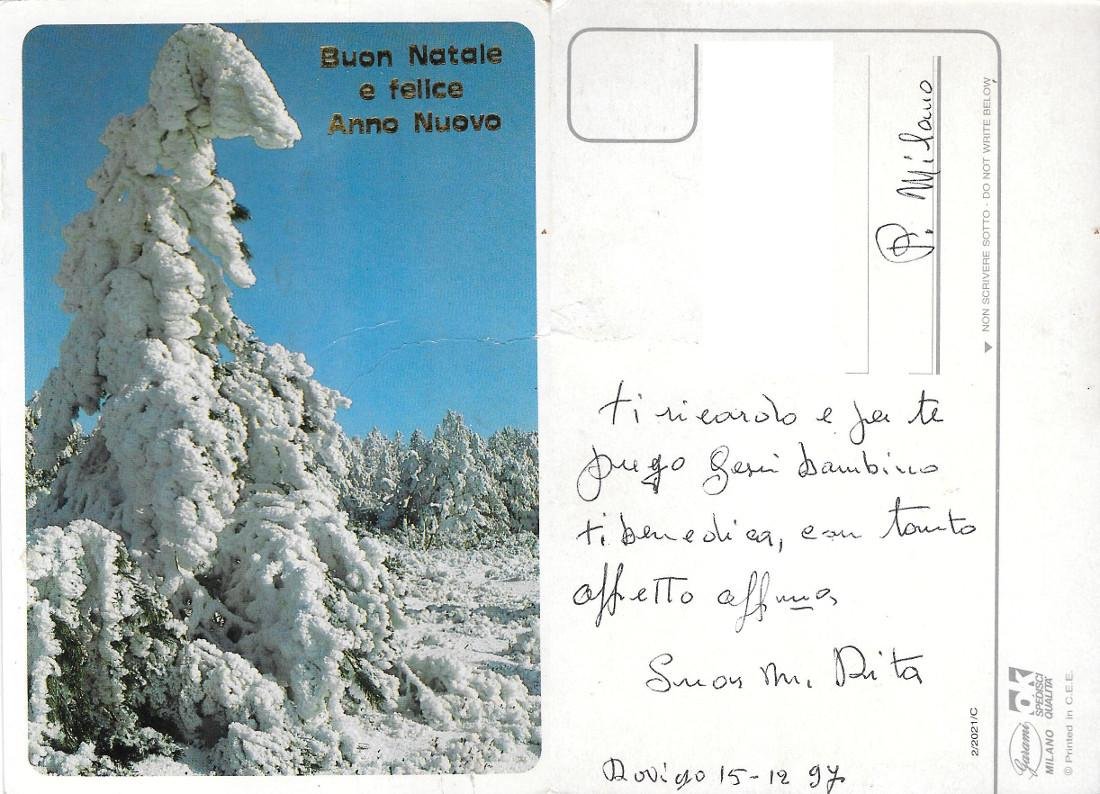 Buon Natale
e felice
Anno Nuovo
P. Milano
▼ NON SCRIVERE SOTTO - DO NOT WRITE BELOW
ti ricordo e per te
prego Gesù bambino
ti benedica, con tanto
affetto aff.ma
Suor M. Rita
Rovigo 15-12 97
2/2021/C
Garami
MILANO
SPEDISCI
QUALITA'
© Printed in C.E.E.